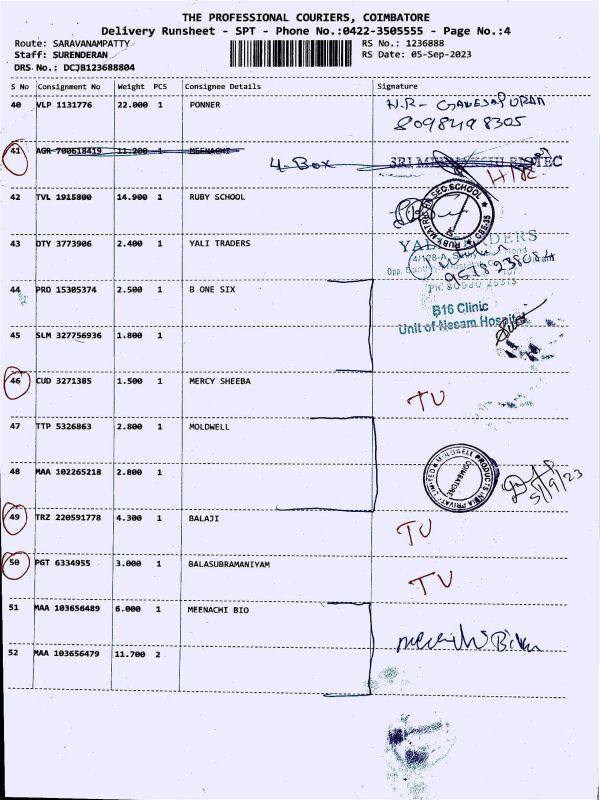 THE PROFESSIONAL COURIERS, COIMBATORE
Delivery Runsheet - SPT - Phone No.:0422-3505555 - Page No.:4
Route: SARAVANAMPATTY RS No.: 1236888
Staff: SURENDERAN RS Date: 05-Sep-2023
DRS No.: DCJB123688804
S No Consignment No Weight PCS Consignee Details Signature
40 VLP 1131776 22.000 1 PONNER N.R- GANESAPURAM
8098498305
41 AGR 700618419 11.200 1 MEENACHI 4-Box
42 TVL 1915800 14.900 1 RUBY SCHOOL
RUBY MATRIC HR.SEC.SCHOOL CBE-35
43 DTY 3773906 2.400 1 YALI TRADERS YALI TRADERS
9578238084
44 PRO 15305374 2.500 1 B ONE SIX
B16 Clinic
Unit of Nesam Hospital
45 SLM 327756936 1.800 1
46 CUD 3271385 1.500 1 MERCY SHEEBA TU
47 TTP 5326863 2.800 1 MOLDWELL
MOLDWELL PRODUCTS INDIA PRIVATE LIMITED
COIMBATORE
5/9/23
48 MAA 102265218 2.800 1
49 TRZ 220591778 4.300 1 BALAJI TU
50 PGT 6334955 3.000 1 BALASUBRAMANIYAM TU
51 MAA 103656489 6.000 1 MEENACHI BIO
52 MAA 103656479 11.700 2